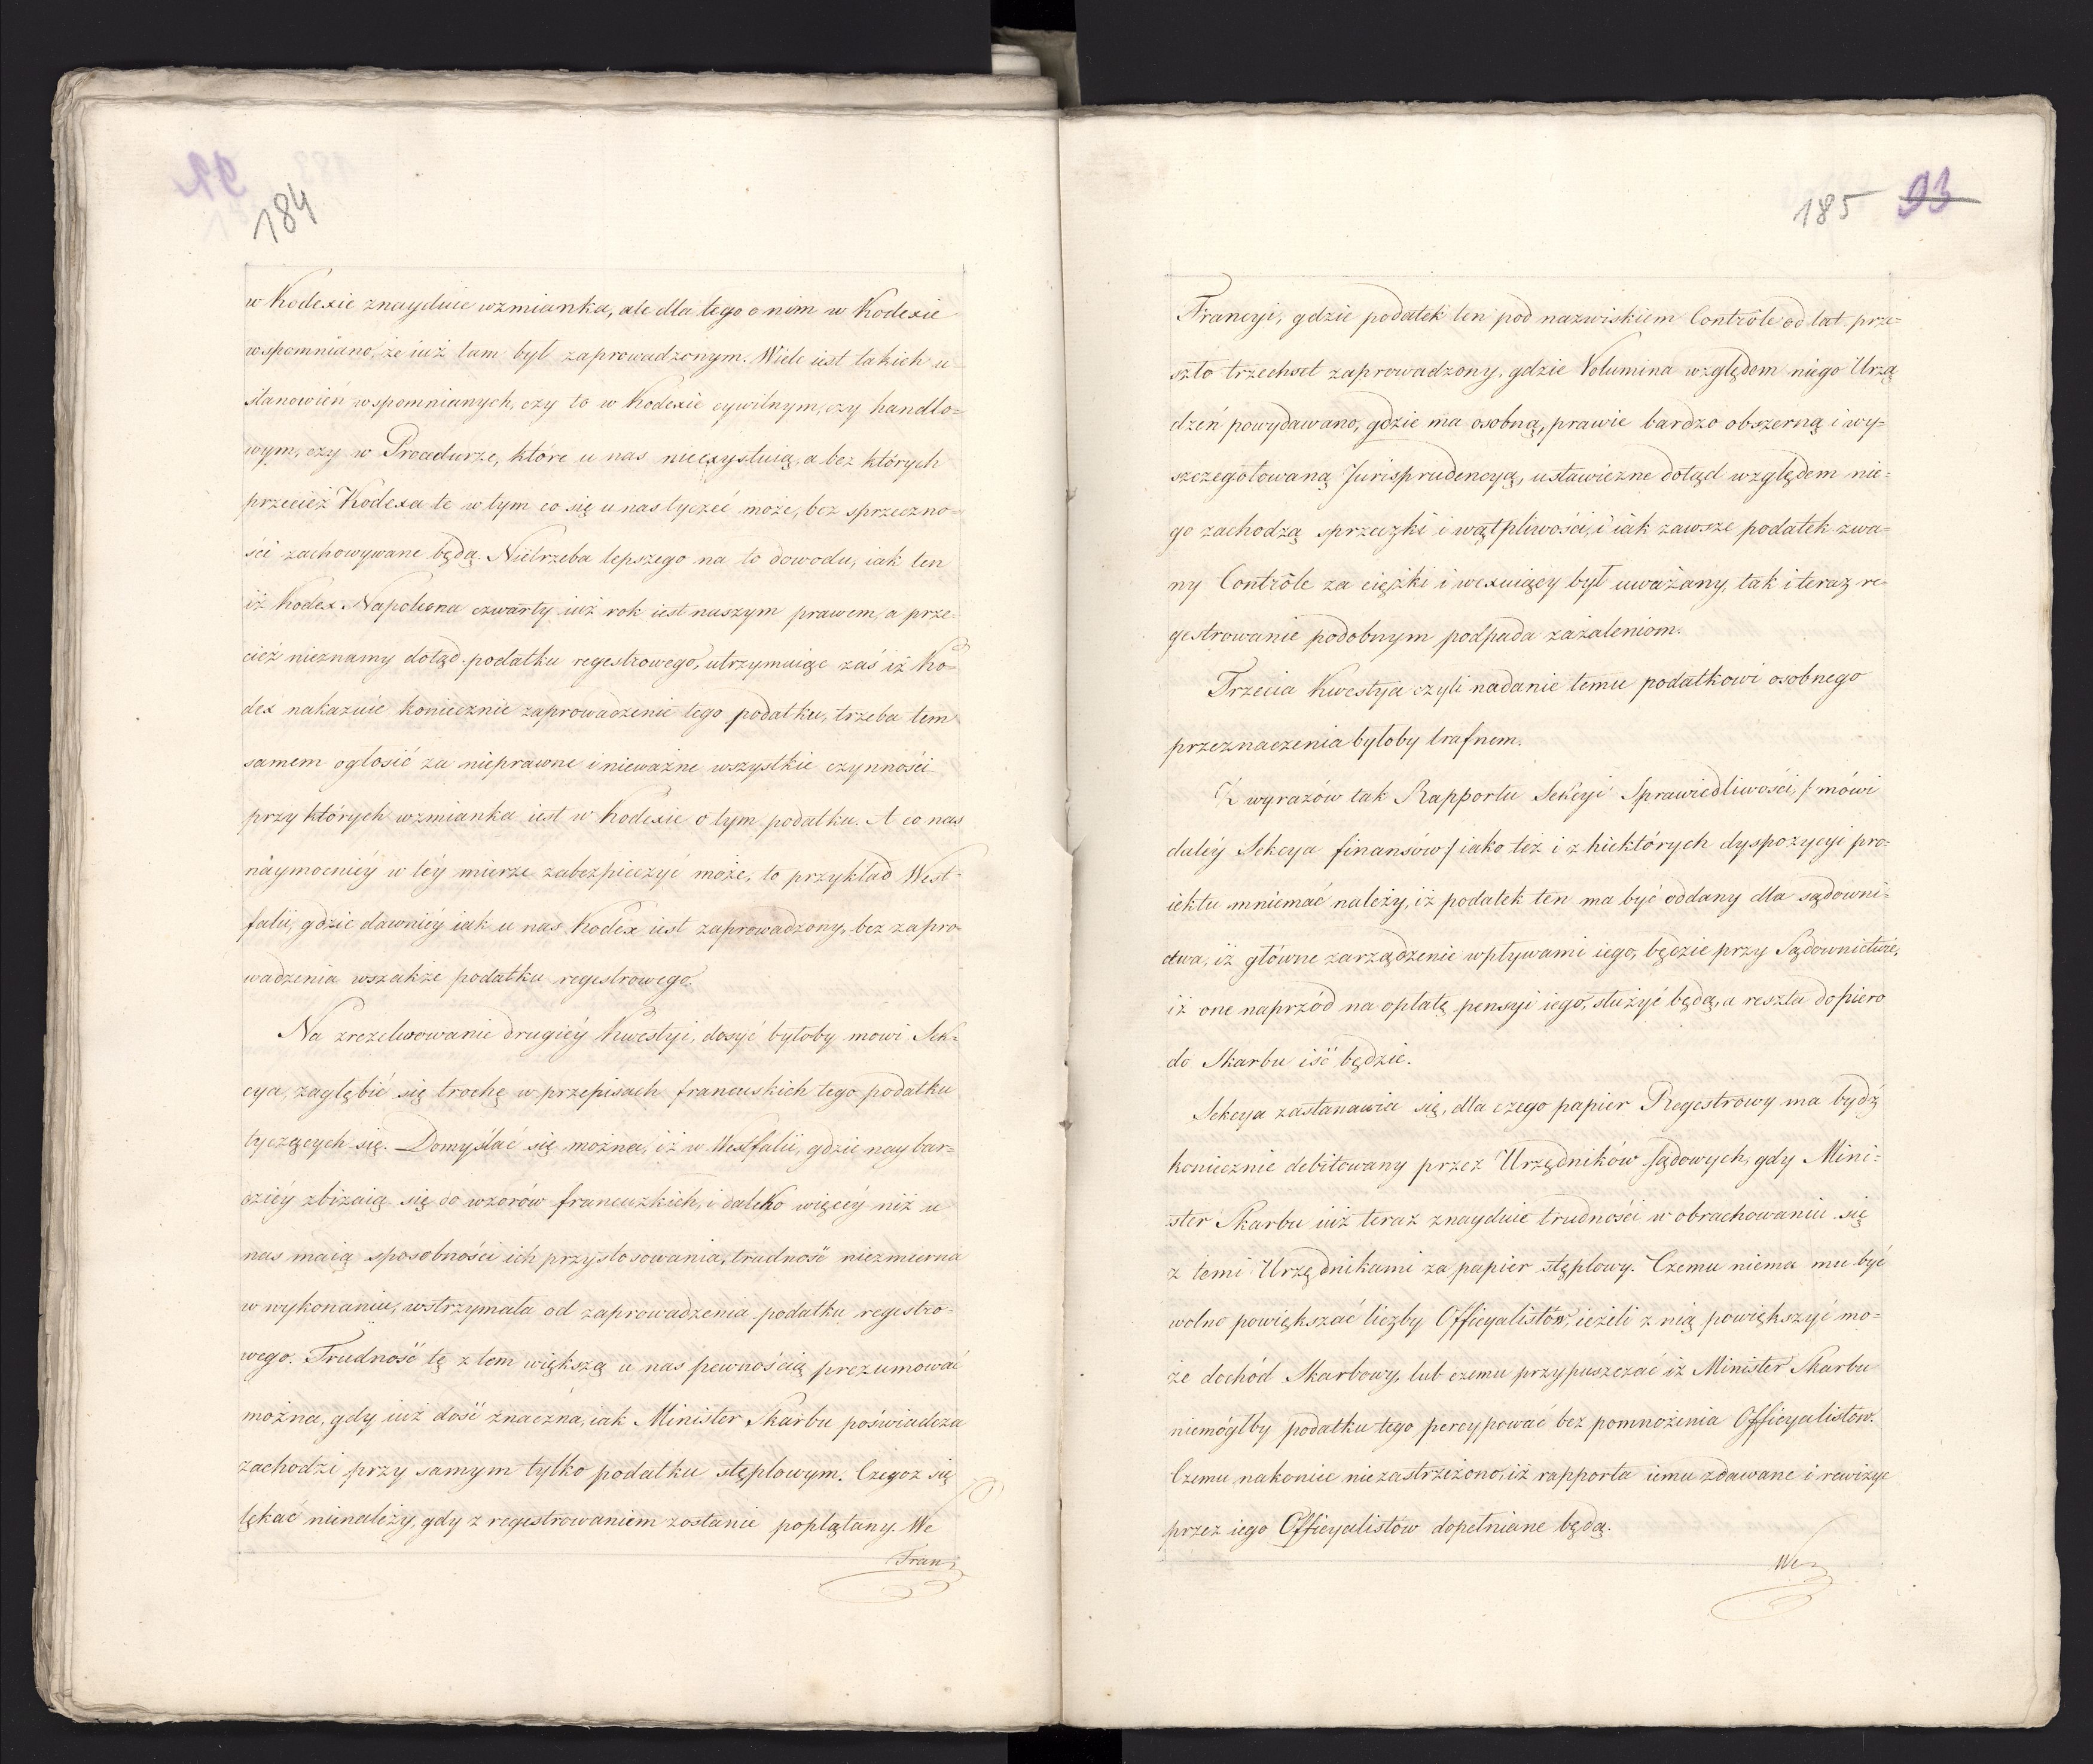 184
w Kodexie znayduie wzmianka, ale dla tego o nim w Kodexie
wspomniano, że iuż tam był zaprowadzonym. Wiele iest takich u-
stanowień wspomnianych, czy to w Kodexie cywilnym, czy handlo=
wym, czy w Procedurze, które u nas nieexystuią, a bez których
przecież Kodexa te w tym co się u nas tyczeć może, bez sprzeczno=
ści zachowywane będą. Nietrzeba lepszego na to dowodu, iak ten
iż Kodex Napoleona czwarty iuż rok iest naszym prawem, a prze=
cież nieznamy dotąd podatku regestrowego, utrzymuiąc zaś iż Ko=
dex nakazuie koniecznie zaprowadzenie tego podatku, trzeba tem
samem ogłosić za nieprawne i nieważne wszystkie czynności
przy których wzmianka iest w Kodexie o tym podatku. A co nas
náymocniéy w téy mierze zabezpieczyć może, to przykład West=
falii, gdzie dawniéy iak u nas Kodex iest zaprowadzony, bez zapro-
wadzenia wszakże podatku regestrowego.
Na zrezelwowanie drugiéy Kwestyi, dosyć byłoby mowi Sek=
cya, zagłębić się trochę w przepisach francuskich tego podatku
tyczących się. Domyślać się można, iż w Westfalii, gdzie nay bar=
dziéy zbiżaią się do wzorów francuzkich, i daleko więcéy niż u
nas maią sposobności ich przystosowania, trudność niezmierna
w wykonaniu, wstrzymała od zaprowadzenia podatku regestro=
wego. Trudność tę z tem większą u nas pewnością prezumować
można, gdy iuż dość znaczna, iak Minister Skarbu poświadcza
zachodzi przy samym tylko podatku stęplowym. Czegoz się
lękać nienależy, gdy z regestrowaniem zostanie poplątany. We
Fran
185 93
Francyi, gdzie podatek ten pod nazwiskiem Contrôle od lat prze=
szło trzechset zaprowadzony, gdzie Volumina względem niego Urzą
dzeń powydawano, gdzie ma osobną, prawie bardzo obszerną i wy=
szczegolowaną Jurisprudencyą, ustawiczne dotąd względem nie=
go zachodzą sprzeczki i wątpliwości, i iak zawsze podatek zwa=
ny Contrôle za ciężki i wexuiący był uważany, tak i teraz re=
gestrowanie podobnym podpada zażaleniom.
Trzecia Kwestya czyli nadanie temu podatkowi osobnego
przeznaczenia byłoby trafnem.
Z wyrazów tak Rapportu Sekcyi Sprawiedliwości, /: mówi
daléy Sekcya finansów :/ iako też i z niektórych dyspozycyi pro=
iektu mniemać należy, iż podatek ten ma być oddany dla sądowni=
ctwa, iż główne zarządzenie wpływami iego, będzie przy Sądownictwie,
iż one naprzód na opłatę pensyi iego, służyć będą, a reszta dopiero
do Skarbu iść będzie.
Sekcya zastanawia się, dla czego papier Regestrowy ma bydź
koniecznie debitowany przez Urzędników sądowych, gdy Mini=
ster Skarbu iuż teraz znayduie trudności w obrachowaniu się
z temi Urzędnikami za papier stęplowy. Czemu niema mu być
wolno powiększać liczby Officyalistów, ieżeli z nią powiększyć mo=
że dochód Skarbowy, lub czemu przypuszczać iż Minister Skarbu
niemógłby podatku tego percypować bez pomnożenia Officyalistów.
Czemu nakoniec niezastrzeżono, iż rapporta iemu zdawane i rewizye
przez iego Officyalistów dopełniane będą.
We